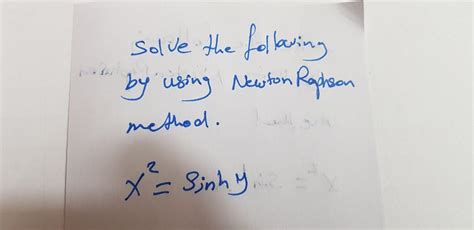 Solve the following
by using Newton Raphson
method.
x² = Sinh y